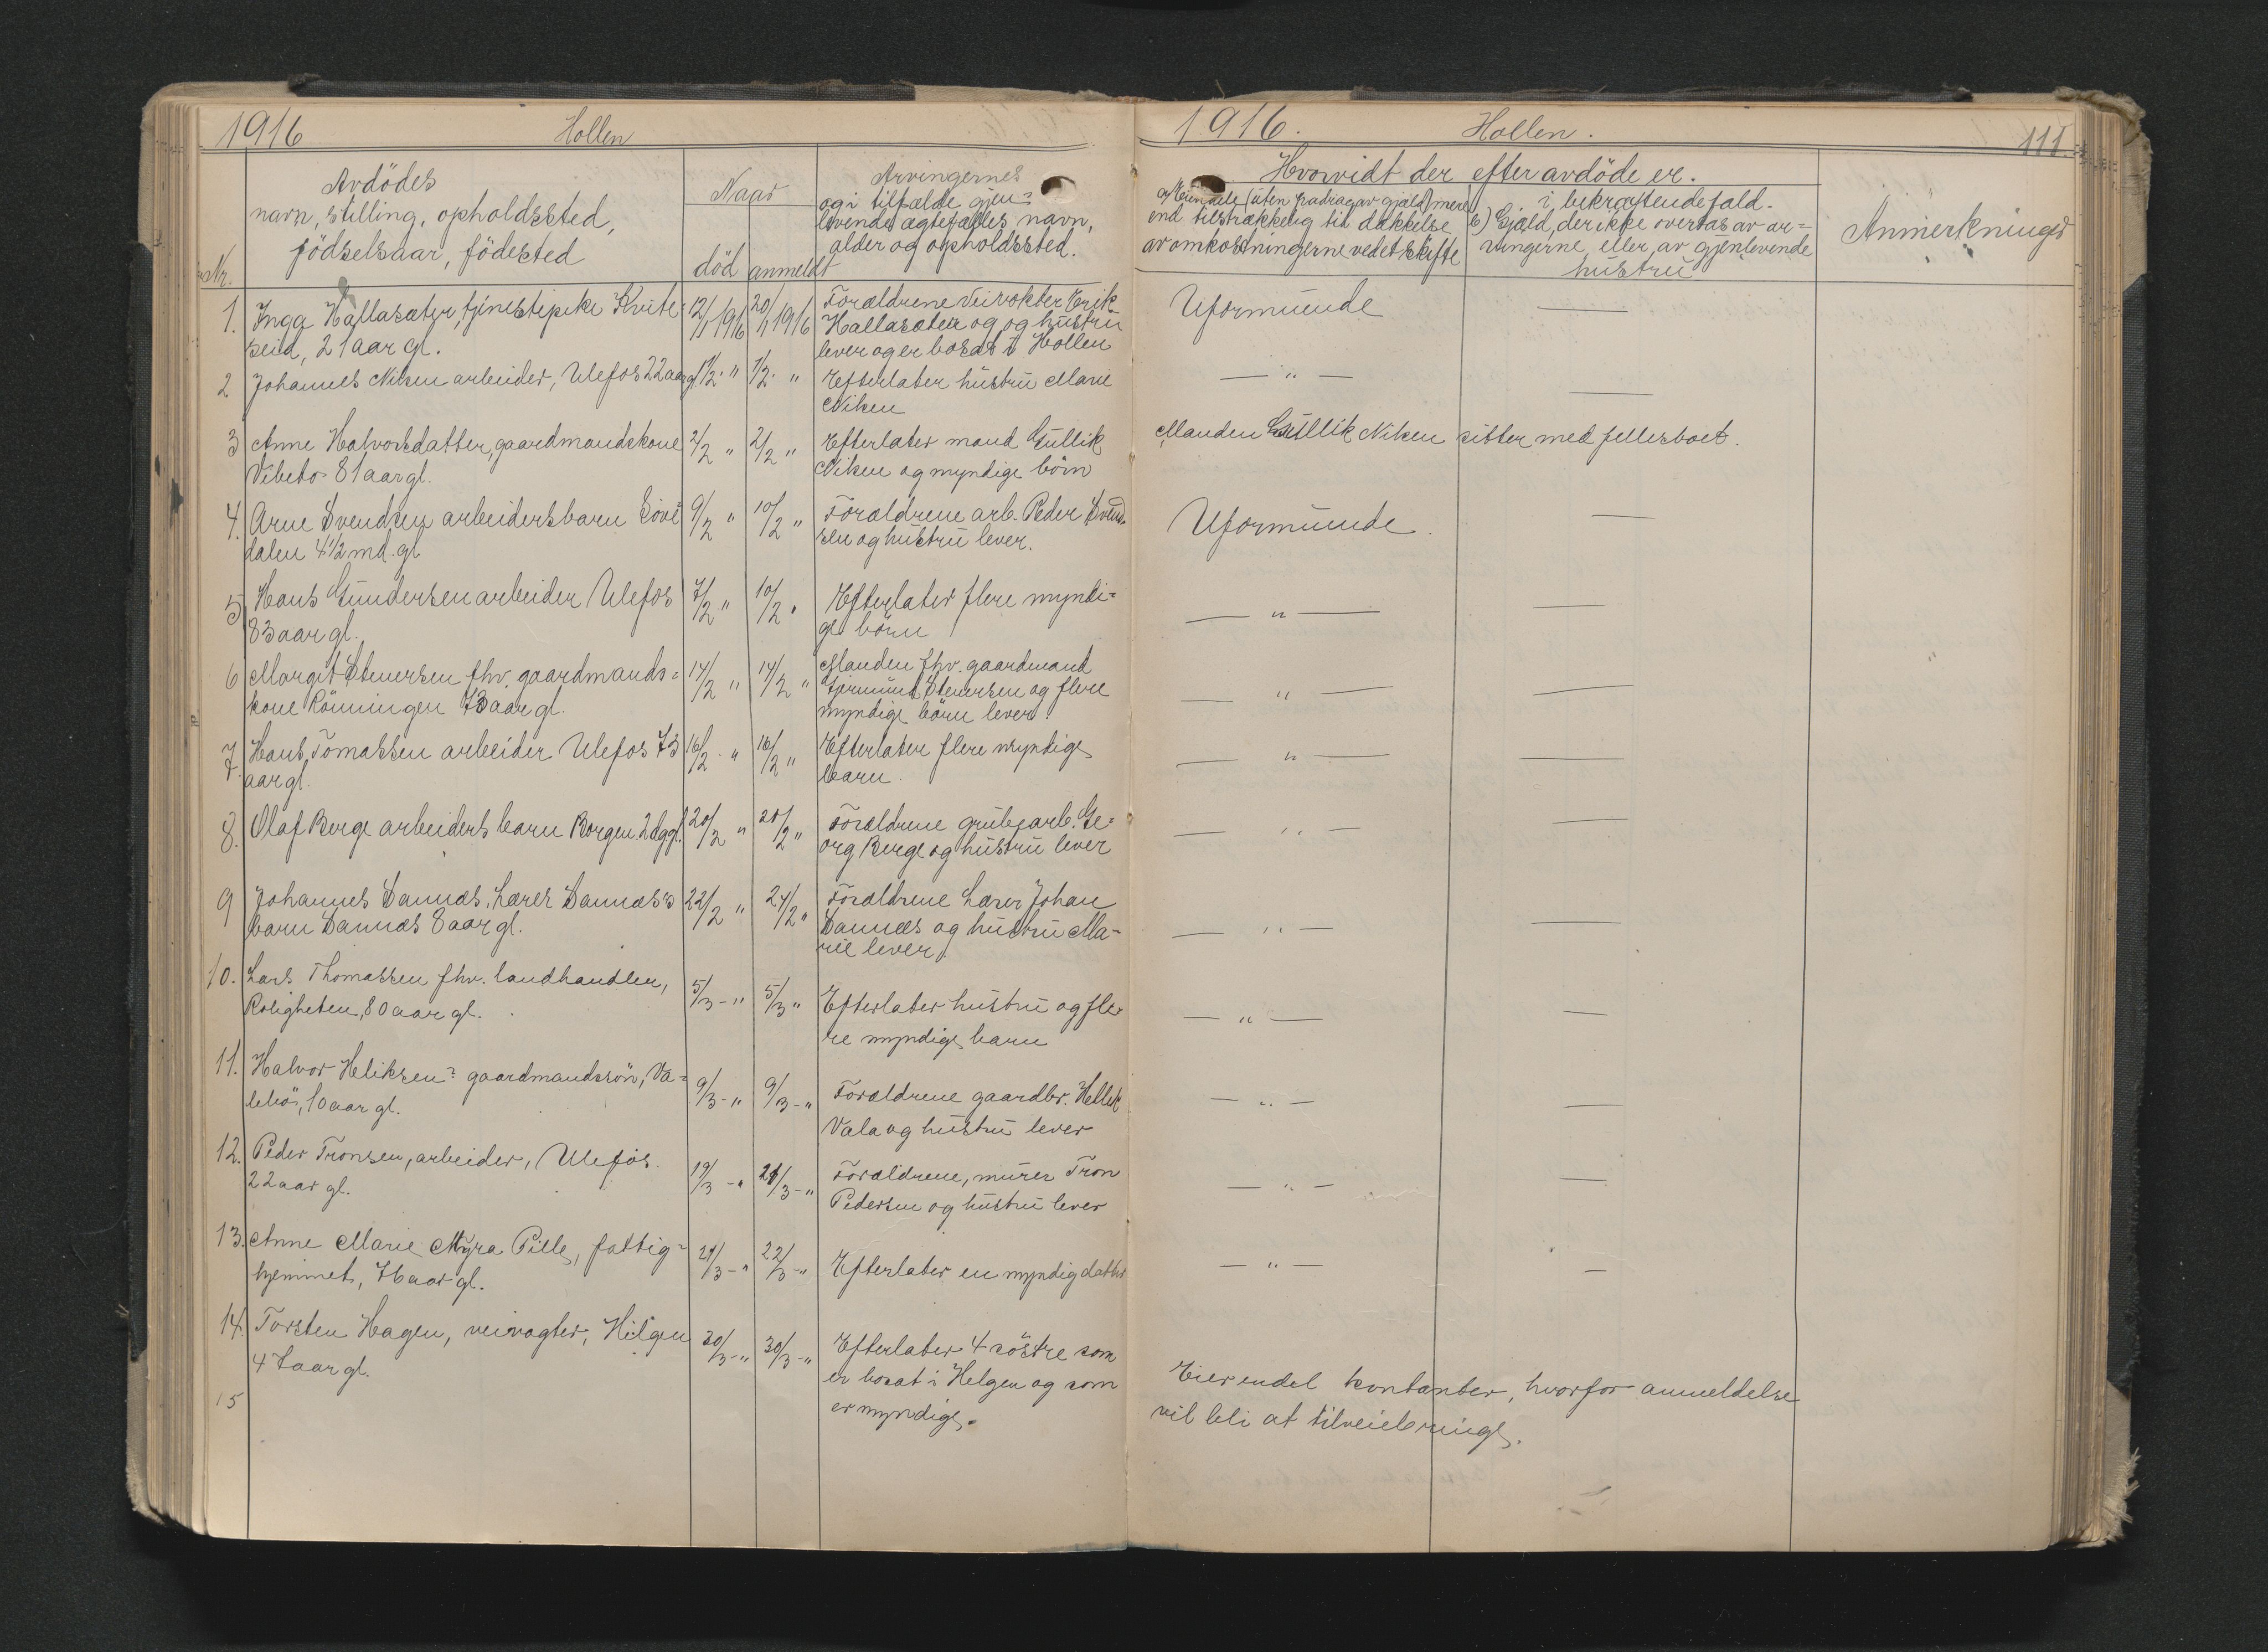 1916 Hollen
Avdödes
navn, stilling, opholdssted,
födselsaar, födested
Nr.
Naar
död anmeldt
Arvingernes
og i tilfælde gjen-
levende ægtefælles navn,
alder og opholdssted.
1. Inga Hallasæter, tjenestepike Kvite-
seid, 21 aar gl.
12/1 1916 20/1 1916
Forældrene Veivokter Erik
Hallasæter og og hustru
lever og er bosat i Hollen
2 Johannes Niken arbeider, Ulefos 22 aar gl.
1/2 " 1/2 "
Efterlater hustru Marie
Niken
3 Anne Halvorsdatter, gaardmandskone
Vibeto 81 aar gl.
2/2 " 2/2 "
Efterlater mand Gullik
Niken og myndige börn
4. Arne Svendsen arbeidersbarn Sövi-
dalen 4 1/2 md. gl.
9/2 " 10/2 "
Forældrene arb. Peder Svend-
sen og hustru lever.
5 Hans Gundersen arbeider Ulefos
83 aar gl.
7/2 " 10/2 "
Efterlater flere myndi-
ge börn
6 Margit Stenersen fhv. gaardmands-
kone Rönningen 73 aar gl.
14/2 " 14/2 "
Manden fhv. gaardmand
Stenersen og flere
myndige börn lever.
7. Hans Tomassen arbeider Ulefos 73
aar gl.
16/2 " 16/2 "
Efterlater flere myndige
barn.
8. Olaf Berge arbeiders barn Borgen 2 dg gl.
20/2 " 20/2 "
Forældrene grubearb. Ge-
org Berge og hustru lever
9 Johannes Dannæs, Lærer Dannæs's
barn Dannæs 8 aar gl.
22/2 " 24/2 "
Forældrene Lærer Johan
Dannæs og hustru Ma-
rie lever
10. Lars Thomassen fhv. landhandler,
Roligheten, 80 aar gl.
5/3 - " 5/3 "
Efterlater hustru og fle-
re myndige barn
11. Halvor Heliksen? gaardmandssön, Va-
lebö, 10 aar gl.
9/3 - " 9/3 - "
Forældrene gaardbr. Hellek
Vala og hustru lever
12. Peder Tronsen, arbeider, Ulefos.
22 aar gl.
19/3 - " 21/3 - "
Forældrene, murer Tron
Pedersen og hustru lever
13. Anne Marie Myra Pille, fattig-
hjemmet, 76 aar gl.
21/3 - " 22/3 - "
Efterlater en myndig datter
14. Torsten Hagen, veivogter, Helgen
47 aar gl.
30/3 - " 30/3 - "
Efterlater 4 söstre som
er bosat i Helgen og som
er myndige.
15
1916. Hollen. 111
Hvorvidt der efter avdöde er.
a) Eiendele (uten fradrag av gjæld) mere
end tilstrækkelig til dækkelse
av omkostningerne ved et skifte
i bekræftende fald.
b) Gjæld, der ikke overtas av ar-
vingerne eller av gjenlevende
hustru
Anmerkninger
Uformuende —
— " — —
Manden Gullik Niken sitter med fellesboet.
Uformuende. —
— " — —
— " — —
— " — —
— " — —
— " — —
— " — —
— " — —
— " — —
— " — —
Eier endel kontanter, hvorfor anmeldelse
vil bli at tilveiebringe.